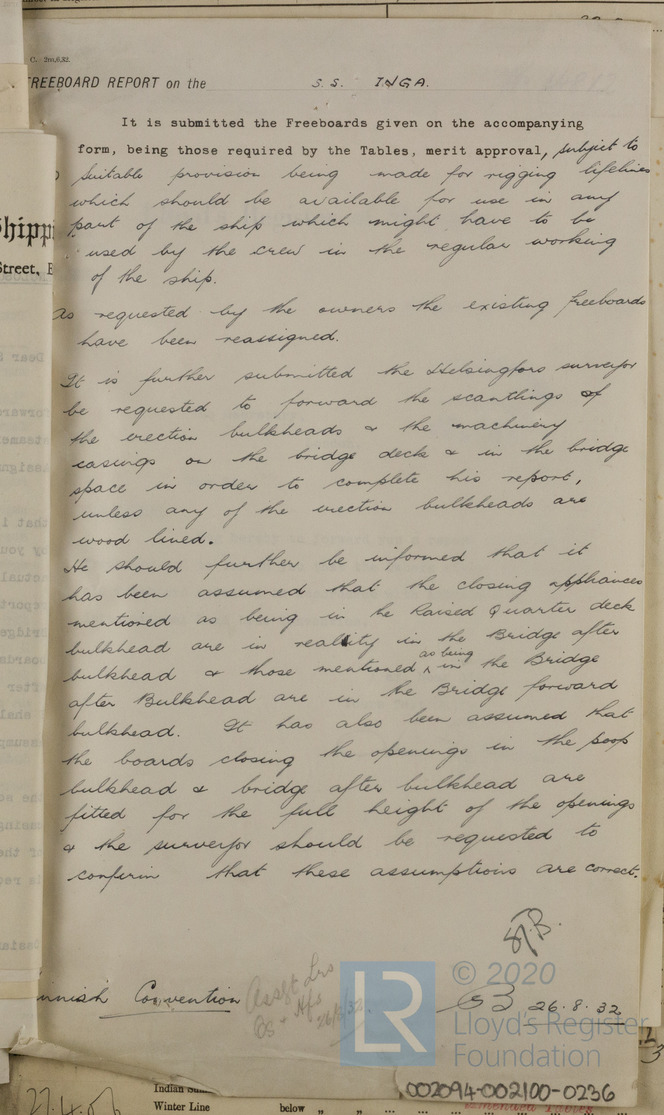 C. 2m,6,32.
FREEBOARD REPORT on the S.S. INGA.
It is submitted the Freeboards given on the accompanying
form, being those required by the Tables, merit approval, subject to
suitable provision being made for rigging lifelines
which should be available for use in any
part of the ship which might have to be
used by the crew in the regular working
of the ship.
As requested by the owners the existing freeboards
have been reassigned.
It is further submitted the Helsingfors surveyor
be requested to forward the scantlings of
the erection bulkheads & the machinery
casings on the bridge deck & in the bridge
space in order to complete his report,
unless any of the erection bulkheads are
wood lined.
He should further be informed that it
has been assumed that the closing appliances
mentioned as being in the Raised Quarter deck
bulkhead are in reality in the Bridge after
bulkhead & those mentioned as being in the Bridge
after Bulkhead are in the Bridge forward
bulkhead. It has also been assumed that
the boards closing the openings in the poop
bulkhead & bridge after bulkhead are
fitted for the full height of the openings
& the surveyor should be requested to
confirm that these assumptions are correct.
nnish Convention
Assgt Lrs
26/8/32.
26.8.32
LR
© 2020
Lloyd's Register
Foundation
002094-002100-0236
hipp
Street,
Dear
forwar
steame
Assign
that i
by you
ctual
eport
ridge
boards
fter
shal
assump
the
of the
27.4.06
Winter Line below " "